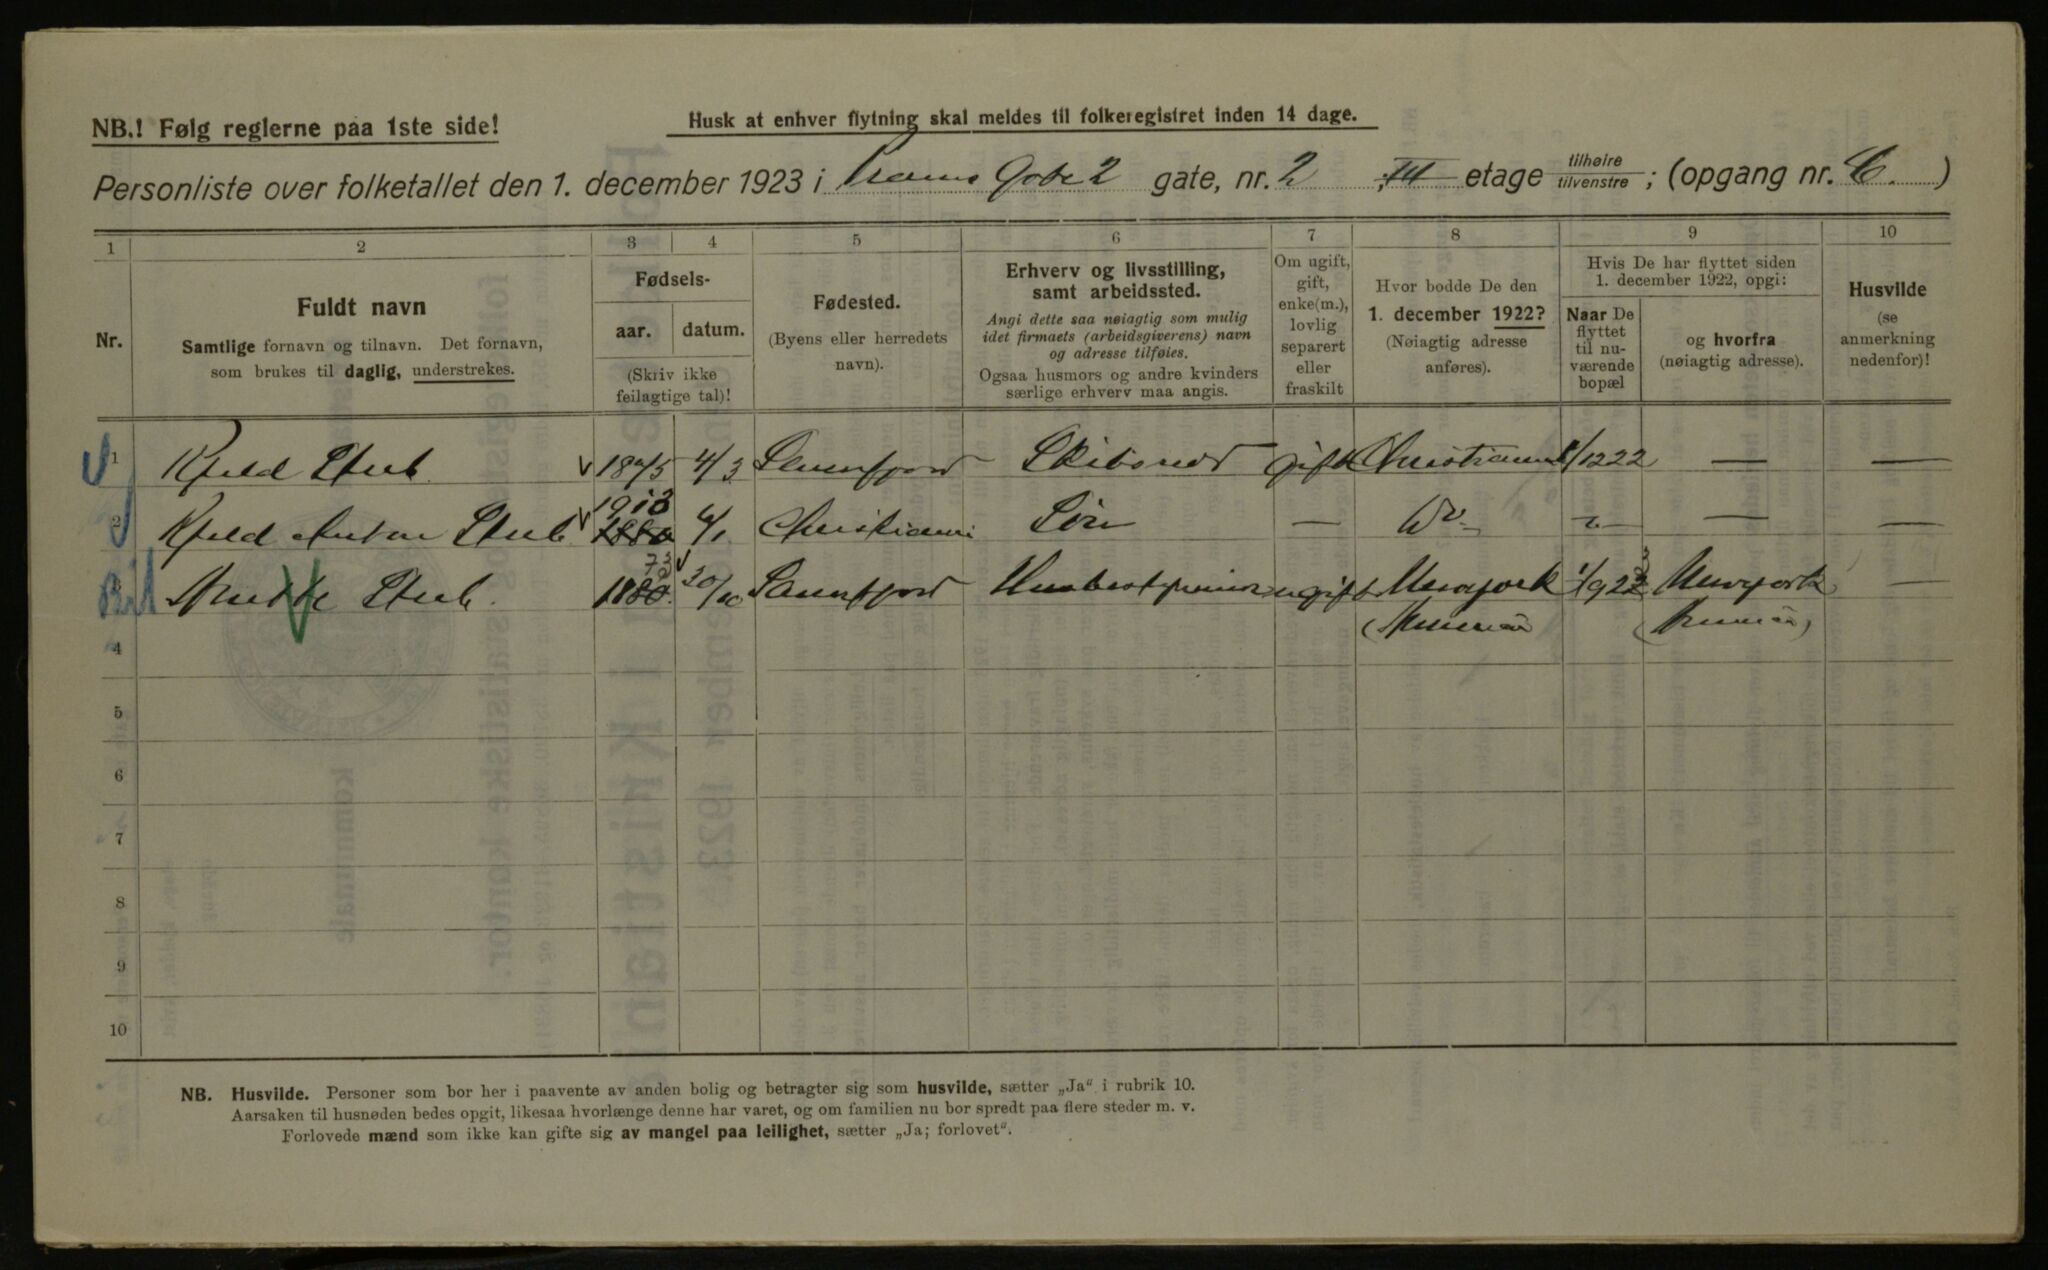 NB.! Følg reglerne paa 1ste side!
Husk at enhver flytning skal meldes til folkeregistret inden 14 dage.
Personliste over folketallet den 1. december 1923 i Prams Gate 2 gate, nr. 2, III etage tilhøire/tilvenstre; (opgang nr. C.)
1 2 3 4 5 6 7 8 9 10
Nr.
Fuldt navn
Samtlige fornavn og tilnavn. Det fornavn,
som brukes til daglig, understrekes.
Fødsels-
aar. datum.
(Skriv ikke
feilagtige tal)!
Fødested.
(Byens eller herredets
navn).
Erhverv og livsstilling,
samt arbeidssted.
Angi dette saa nøiagtig som mulig
idet firmaets (arbeidsgiverens) navn
og adresse tilføies.
Ogsaa husmors og andre kvinders
særlige erhverv maa angis.
Om ugift,
gift,
enke(m.),
lovlig
separert
eller
fraskilt
Hvor bodde De den
1. december 1922?
(Nøiagtig adresse
anføres).
Hvis De har flyttet siden
1. december 1922, opgi:
Naar De
flyttet
til nu-
værende
bopæl
og hvorfra
(nøiagtig adresse).
Husvilde
(se
anmerkning
nedenfor)!
1 Kjeld Stub 1875 4/3 Sannfjord gift Christiania 1/1222 — —
1913
2 Kjeld Anton Stub 1880 Christiania Søn — Do — — —
73
3 Stub. 1880 30/10 Sannfjord ugift Newyork 1/922 Newyork —
4
5
6
7
8
9
10
NB. Husvilde. Personer som bor her i paavente av anden bolig og betragter sig som husvilde, sætter „Ja“ i rubrik 10.
Aarsaken til husnøden bedes opgit, likesaa hvorlænge denne har varet, og om familien nu bor spredt paa flere steder m. v.
Forlovede mænd som ikke kan gifte sig av mangel paa leilighet, sætter „Ja; forlovet“.